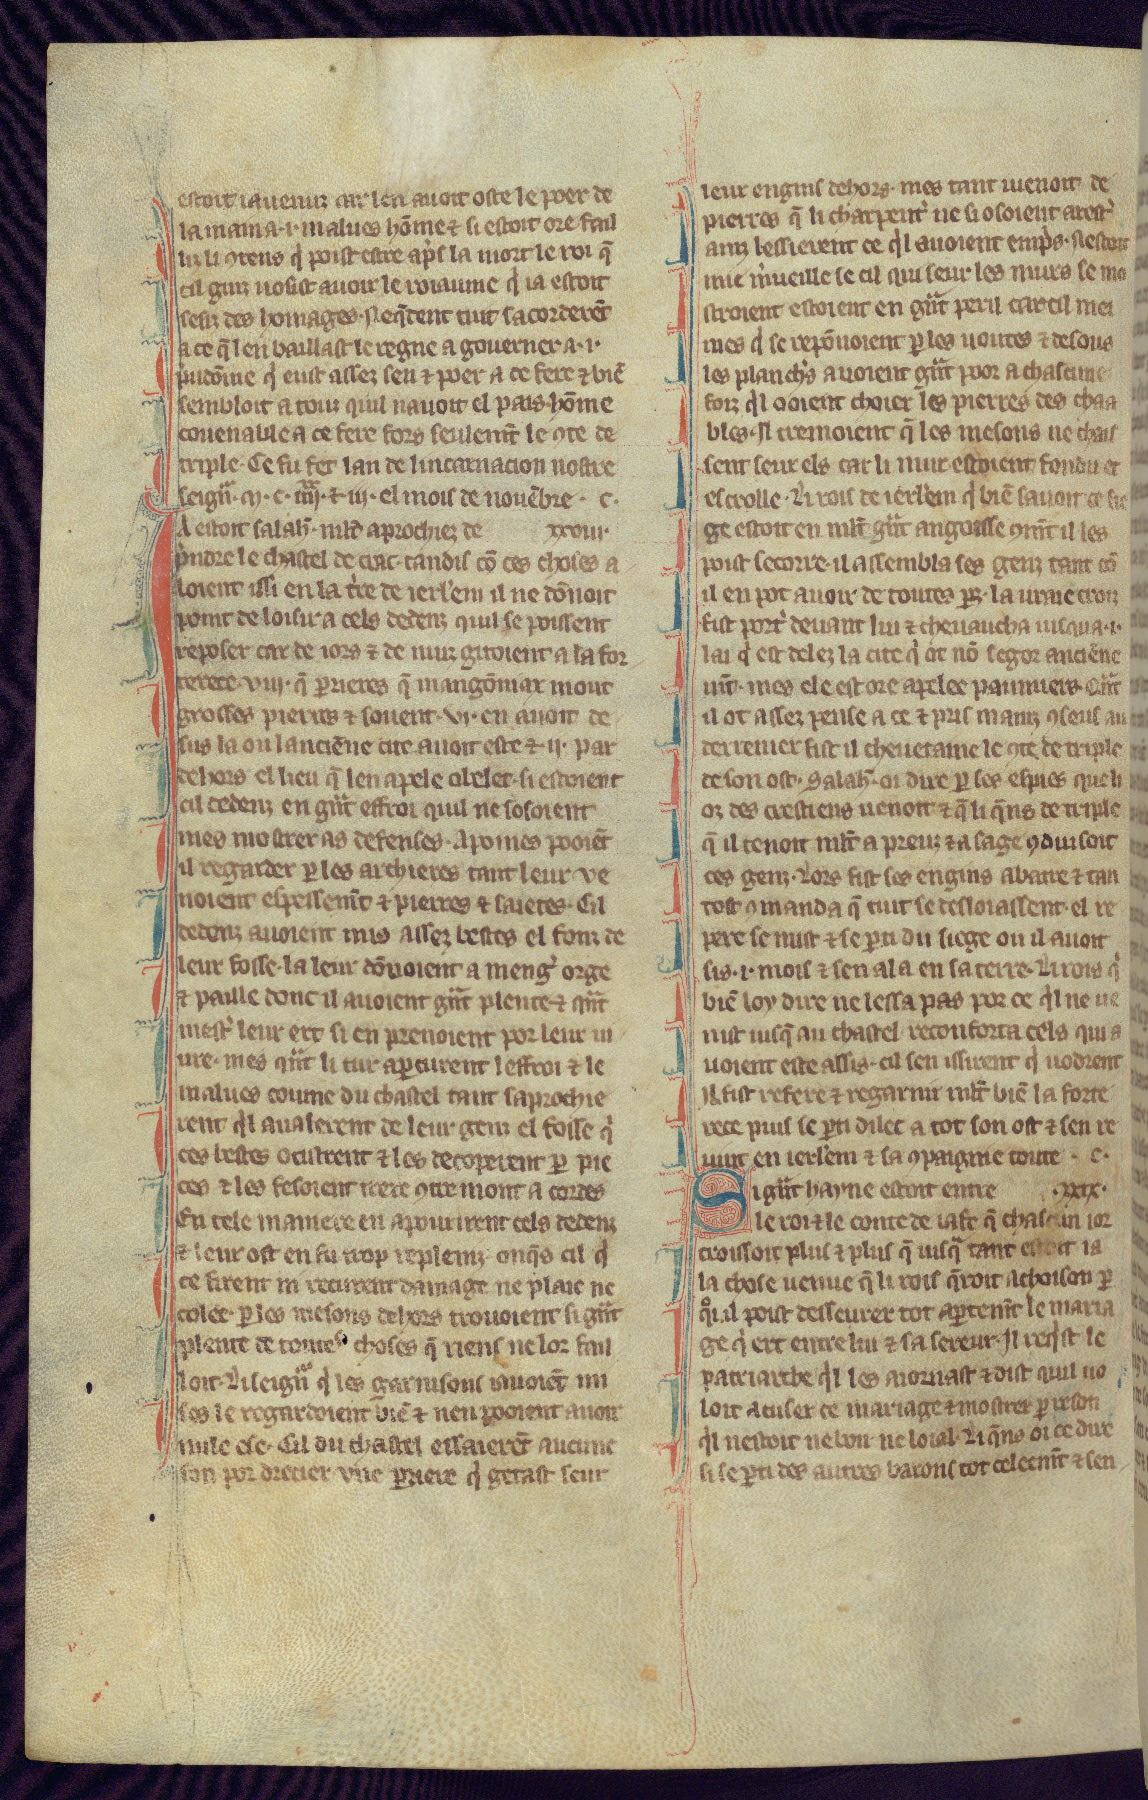 estoit ia venuz car len avoit oste le poer de
la main a .i. malves hõme ⁊ si estoit ore fail
liz li ꝯtens q̇ poist estre ap̾s la mort le roi q̃
cil guiz vosist avoir le roiaume q̇ ia estoit
sesiz des homages. Neq̃dent tuit sacorderẽt
a ce q̃ len baillast le regne a governer a .i.
p̾udõme q̇ eust assez sen ⁊ poer a ce fere ⁊ biẽ
sembloit a touz quil navoit el pais hõme
covenable a ce fere fors seulemẽt le ꝯte de
triple. Ce fu fet lan de lincarnacion nostre
seign̾. m. c. iiii. ⁊ iii. el mois de novẽbre. c.
A estoit salah̾. ml̃t aprochiez de xxviii.
p̾ndre le chastel de crac. tandis cõ ces choses a
loient issi en la t̾re de ierl̃em il ne dõnoit
point de loisir a cels dedenz quil se poissent
reposer car de iors ⁊ de nuiz gitoient a la for
terece .viii. q̃ ꝑrieres q̃ mangõniax mout
grosses pierres ⁊ sovent .vi. en avoit de
sus la ou lanciẽne cite avoit este ⁊ .ii. par
dehors el lieu q̃ len apele obelet. si estoient
cil dedenz en gr̃nt effroi quil ne sosoient
mes mostrer as defenses. A poines pooiẽt
il regarder ꝑ les archieres tant leur ve
noient espessemẽt ⁊ pierres ⁊ saietes. Cil
dedenz avoient mis assez bestes el fonz de
leur fosse. la leur dõnoient a meng̾ orge
⁊ paille donc il avoient gr̃nt plente. ⁊ q̃nt
mest̾ leur ert si en prenoient por leur vi
vre. mes q̃nt li tur aꝑcurent leffroi ⁊ le
malves covine du chastel tant saprochie
rent q̇l avalerent de leur genz el fosse q̇
ces bestes ocistrent ⁊ les decoperent ꝑ pie
ces ⁊ les fesoient trere ꝯtremont a cordes
En tele maniere en apourirent cels dedenz
⁊ leur ost en fu trop replenie. onq̃s cil q̇
ce firent ni recurent damage ne plaie ne
colee. ꝑ les mesons dehors trovoient si gr̃nt
plente de toutes choses q̃ riens ne lor fail
loit. Li seign̾ q̇ les garnisons i avoiẽt mi
ses le regardoient biẽ ⁊ nen pooient avoir
nule ele. Cil du chastel essaierẽt aucune
foiz por drecier une ꝑriere q̇ getast seur
leur engins dehors. mes tant i venoit de
pierres q̃ li charpent̾ ne si osoient arest̾
ainz lessierent ce q̇l avoient emp̾s. Nestoit
mie m̾veille se cil qui seur les murs se mo
stroient estoient en gr̃nt peril car cil mei
mes q̇ se repõnoient ꝑ les voutes ⁊ desous
les planch̾s avoient gr̃nt poor a chascune
foiz q̇l ooient choier les pierres des chaa
bles. Il cremoient q̃ les mesons ne chais
sent seur els car li mur estoient fondu et
escrolle. Li rois de ierl̃em q̇ biẽ savoit ce sie
ge estoit en ml̃t gr̃nt angoisse ꝯmẽt il les
poist secorre. il assembla ses genz tant cõ
il en pot avoir de toutes ꝑz. la vraie croiz
fist port̾ devant lui ⁊ chevaucha iusqua .i.
lai q̇ est delez la cite q̇ ot nõ segor anciẽne
mt̃. mes ele est ore apelee paumiers. Q̃nt
il ot assez pense a ce ⁊ pris mainz ꝯseus au
derrenier fist il chevetaine le ꝯte de triple
de son ost. Salah̾. oi dire ꝑ ses espies que li
oz des crestiens venoit ⁊ q̃ li q̃ns de triple
q̃ il tenoit ml̃t a preuz ⁊ a sage ꝯduisoit
ces genz. Lors fist ses engins abatre ⁊ tan
tost ꝯmanda q̃ tuit se deslojassent. el re
pere se mist ⁊ se ꝑti du siege ou il avoit
sis .i. mois ⁊ sen ala en sa terre. Li rois q̇
biẽ loy dire ne lessa pas por ce q̇l ne ve
nist iusq̃ au chastel reconforta cels qui a
voient este assis. cil sen issirent q̇ vodrent
Il fist refere ⁊ regarnir ml̃t biẽ la forte
rece puis se ꝑti dilec a tot son ost ⁊ sen re
vint en ierl̃em ⁊ sa ꝯpaignie toute. c.
Si gr̃nt hayne estoit entre .xxix.
le roi ⁊ le conte de iafe q̃ chascun ior
croissoit plus ⁊ plus q̃ iusq̃ tant estoit ia
la chose venue q̃ li rois q̃roit achoison ꝑ
quoi il poist dessevrer tot apertemẽt le maria
ge q̇ ert entre lui ⁊ sa sereur. Il req̇st le
patriarche q̇l les aiornast ⁊ dist quil vo
loit acuser ce mariage ⁊ mostrer ꝑ reson
q̇l nestoit ne bon ne loial. Li q̃ns oi ce dire
si se ꝑti des autres barons tot celeemẽt ⁊ sen